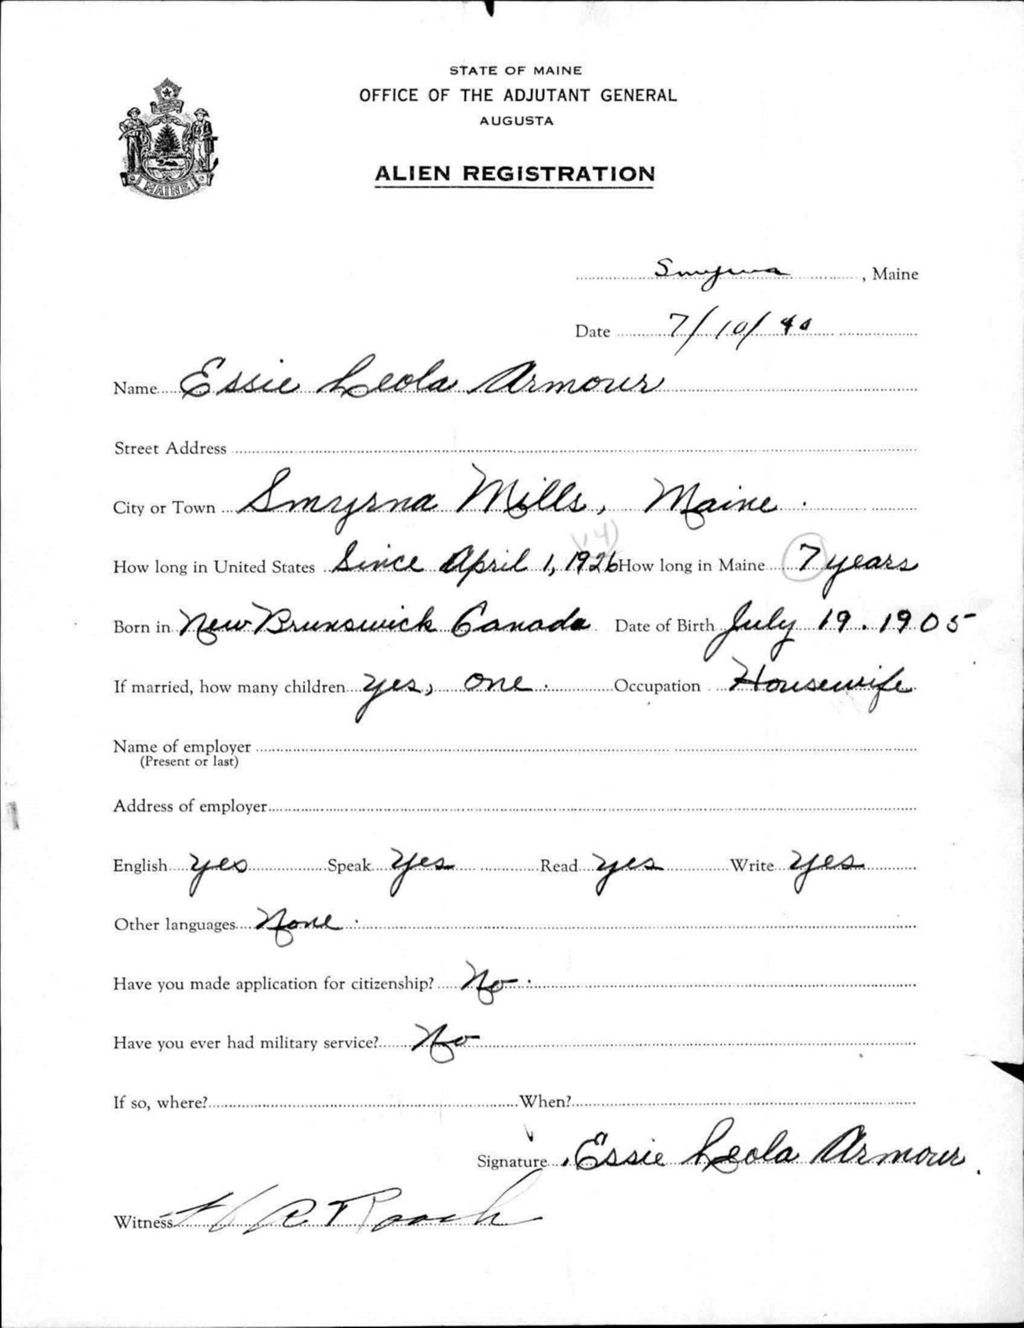 STATE OF MAINE
OFFICE OF THE ADJUTANT GENERAL
AUGUSTA
ALIEN REGISTRATION
MAINE
Smyrna, Maine
Date 7/10/40
Name Essie Leola Armour
Street Address
City or Town Smyrna Mills, Maine.
How long in United States Since April 1, 1926 How long in Maine 7 years
Born in New Brunswick Canada Date of Birth July 19. 1905
If married, how many children yes, one. Occupation Housewife
Name of employer
(Present or last)
Address of employer
English yes Speak Yes Read yes Write yes
Other languages None.
Have you made application for citizenship? No.
Have you ever had military service? No
If so, where? When?
Signature Essie Leola Armour.
Witness Roach